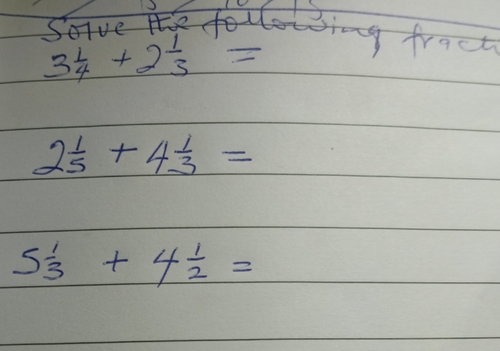 Solve the following
3 1/4 + 2 1/3 =
2 1/5 + 4 1/3 =
5 1/3 + 4 1/2 =